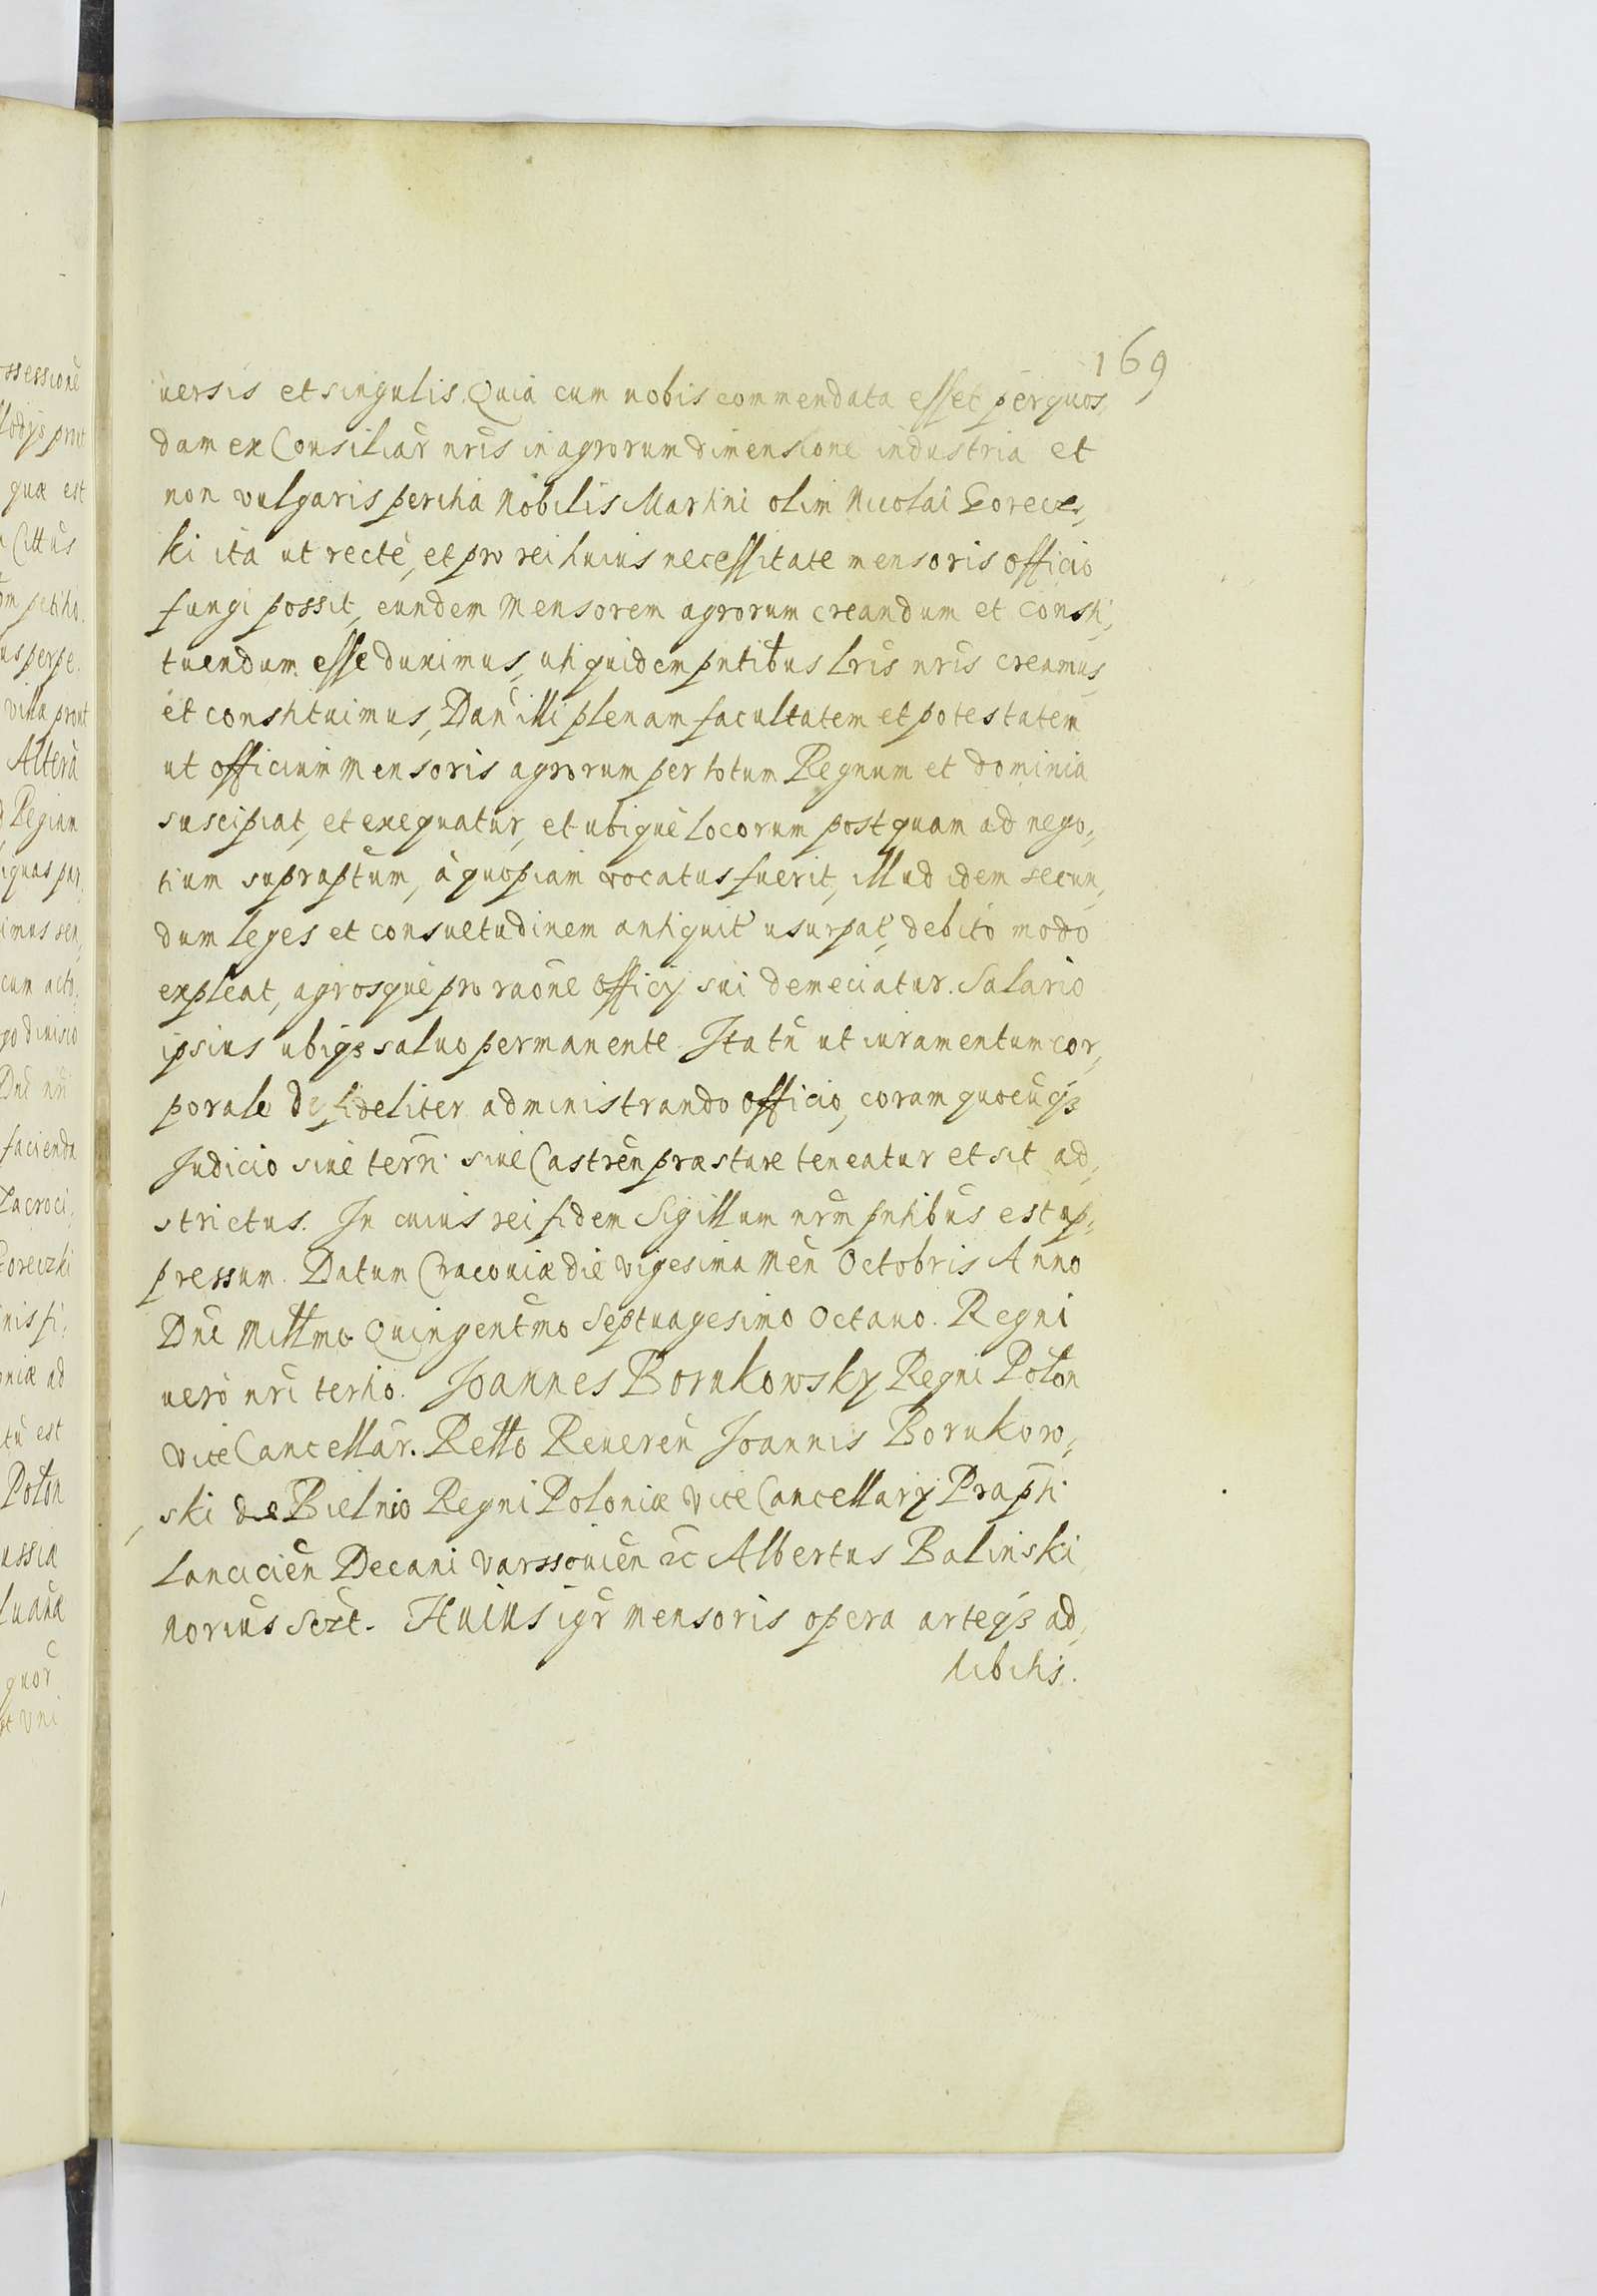 169
uersis et singulis. Quia cum nobis commendata esset per quos,
dam ex Consiliar nris in agrorum dimensione industria et
non vulgaris peritia Nobilis Martini olim Nicolai Gorecz,
ki ita ut rectè, et pro rei huius necessitate mensoris officio
fungi possit, eundem Mensorem agrorum creandum et consti,
tuendum esse duximus, uti quidem pntibus Lris nris creamus,
et constituimus, Dan illi plenam facultatem et potestatem
ut officium Mensoris agrorum per totum Regnum et dominia
suscipiat, et exequatur, et ubique locorum postquam ad nego,
tium supraptum, à quopiam vocatus fuerit, illud idem secun,
dum leges et consuetudinem antiquit usurpat, debito modo
expleat, agrosque pro raone Officij sui demeciatur. Salario
ipsius ubiqz saluo permanente. Ita tn ut iuramentum cor,
porale de fideliter administrando officio, coram quocunqz
Judicio siue terri siue Castren præstare teneatur et sit ad,
strictus. In cuius rei fidem Sigillum nrm pntibus est ap,
pressum. Datum Cracouiæ die vigesima Men Octobris Anno
Dni Millmo Quingentmo Septuagesimo Octauo. Regni
uerò nri tertio. Joannes Bornkowsky Regni Polon
Vice Cancellar. Rello Reueren Joannis Bornkow,
ski de Bielnio Regni Poloniæ Vice Cancellarij Præpti
Lancicien Decani Varssouien &c Albertus Balinski
norius Sczt. Huius igr mensoris opera arteqz ad,
hibitis.
ssessione
llodijs prout
quæ est
Cittus
petitio.
us perpe.
villa prout
Alterà
Regiam
iquas par,
imus sen,
cum acto,
go diuisio
Dni nri
facienda
Zacroci,
Goreczki
nis fi,
oniæ ad
tu est
Polon
ussiæ
luana
quor
et Vni